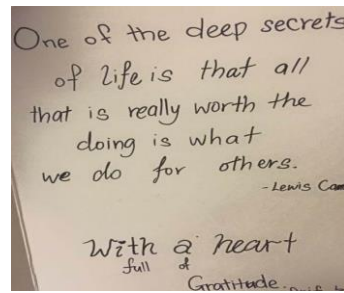 One of the deep secrets
of life is that all
that is really worth the
doing is what
we do for others.
- Lewis
With a heart
full of
Gratitude.